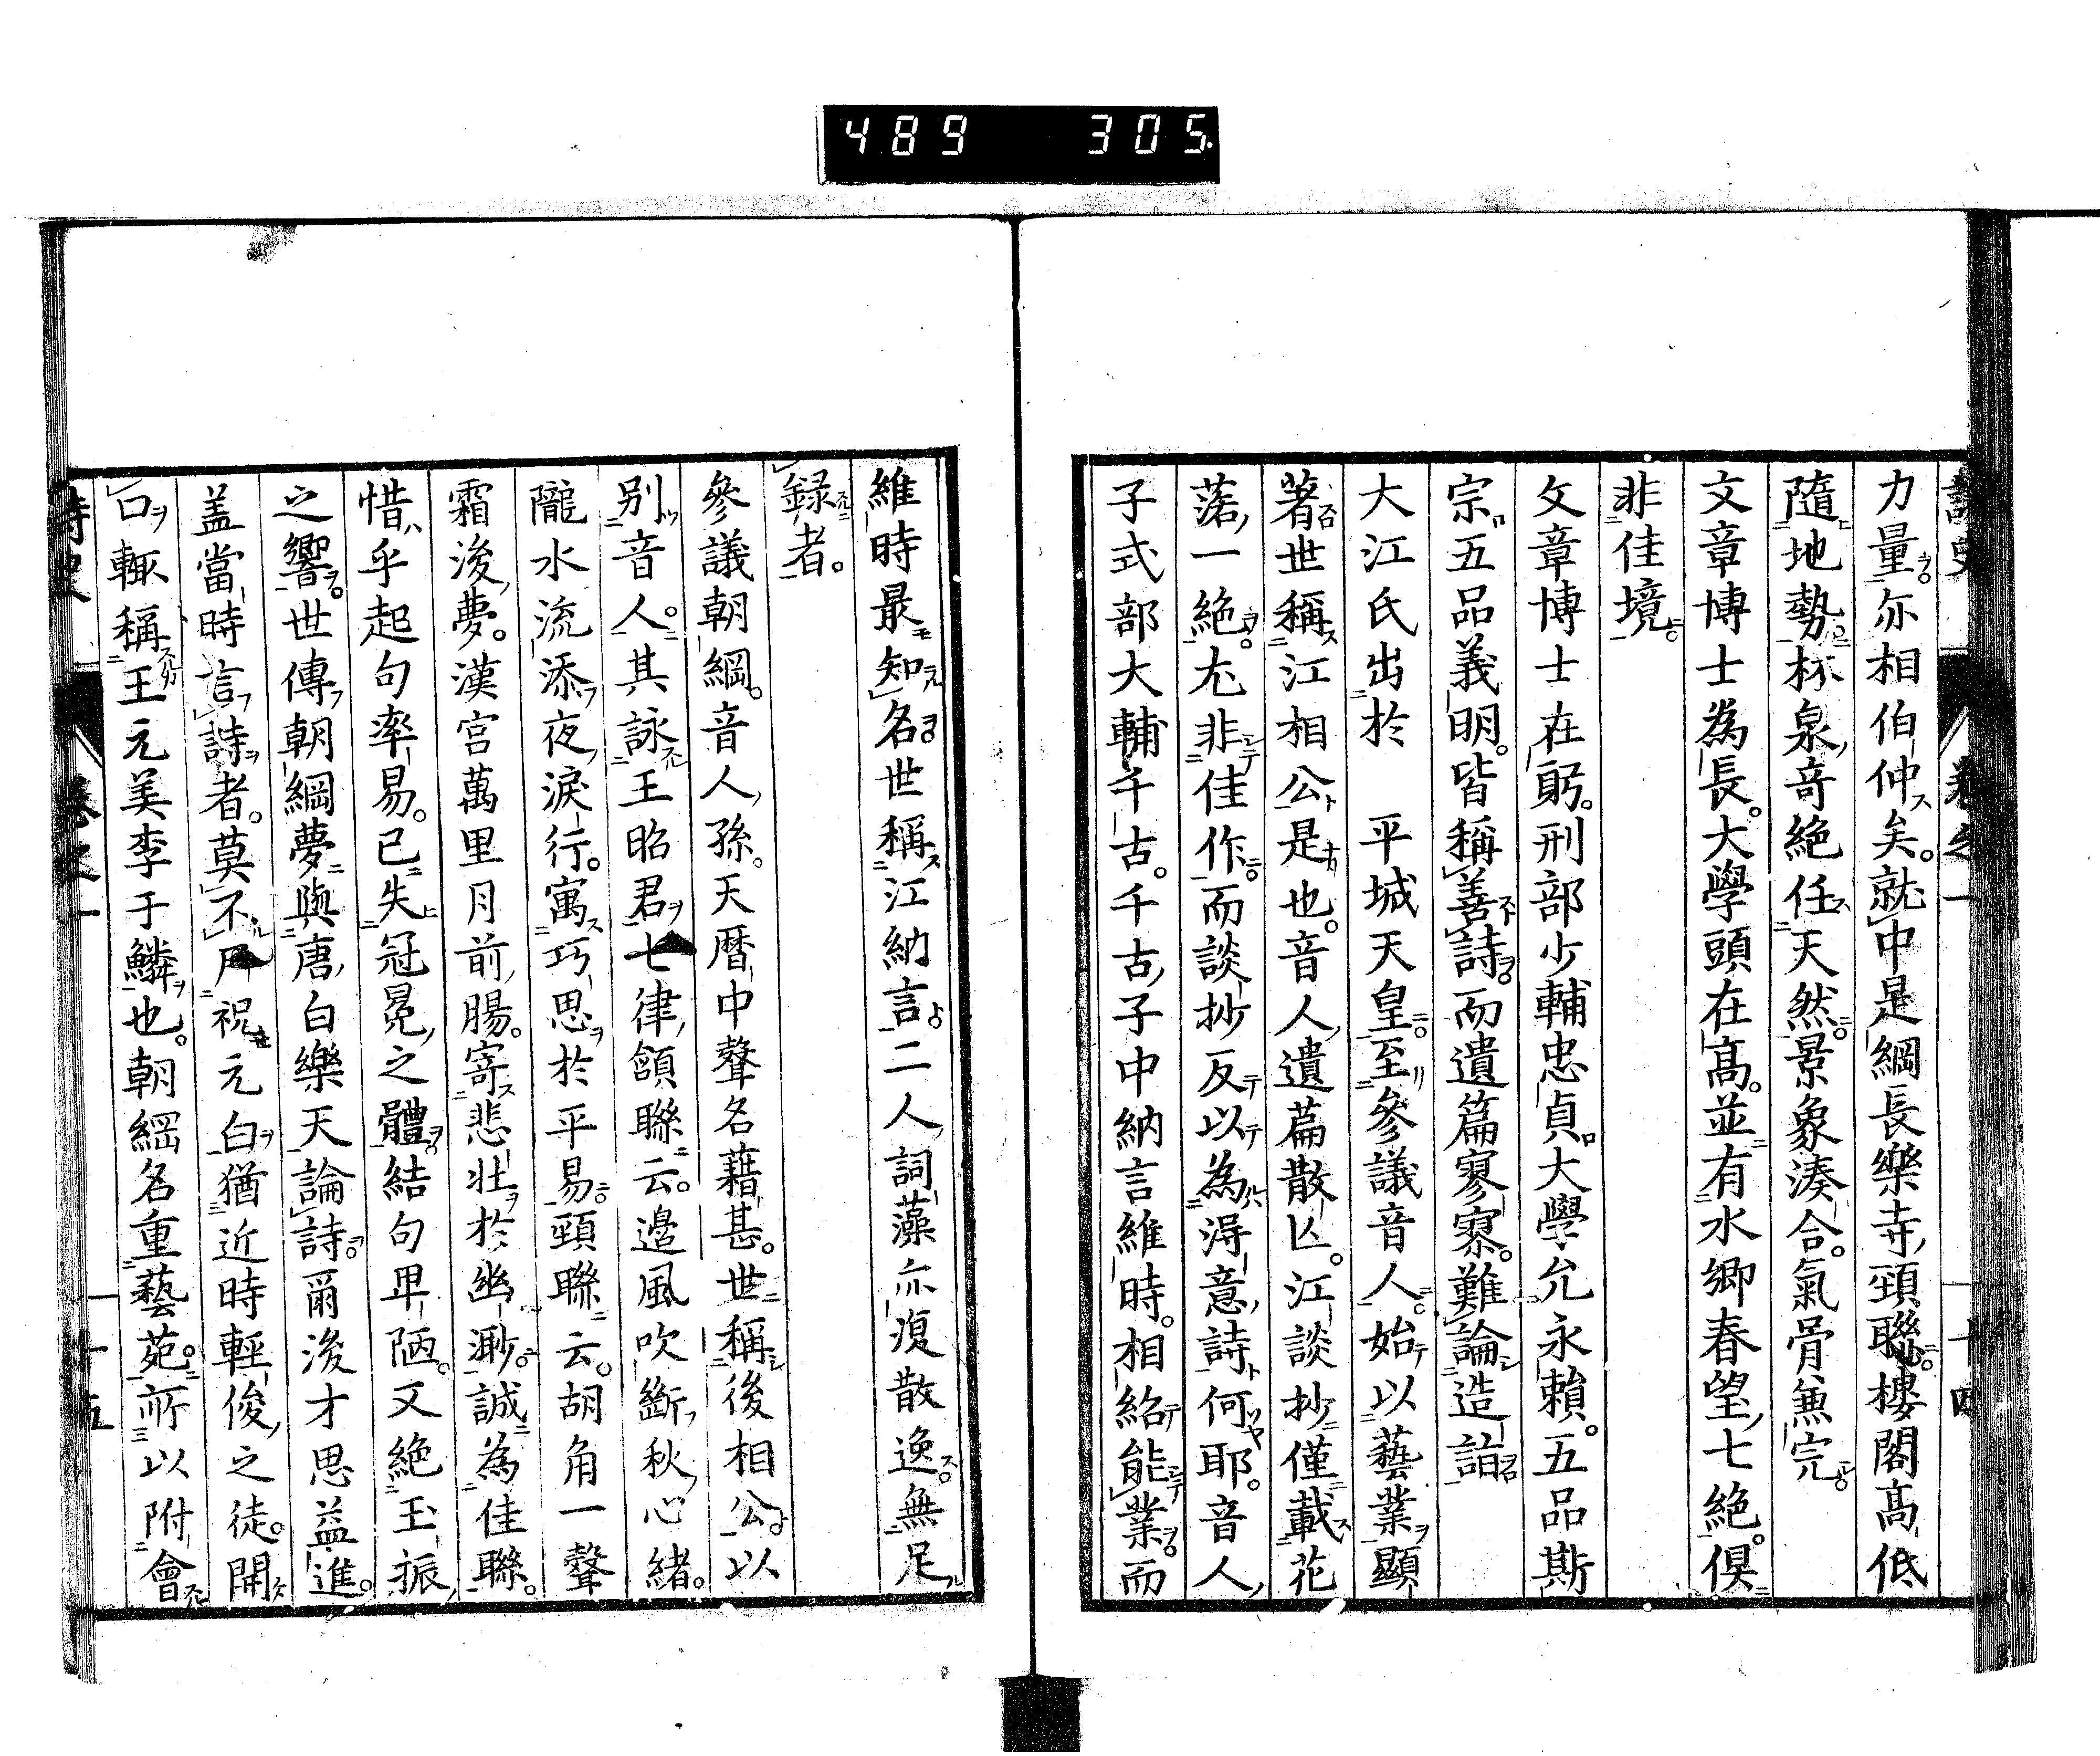 489 305.
力量。亦相伯仲矣。就中是綱長樂寺、頸聯。樓閣高低
隨地勢。林泉、奇絶任天然。景象湊合。氣骨兼完。
文章博士為長。大學頭在高。並有水鄉春望、七絶。俱
非佳境。
文章博士在躬。刑部少輔忠貞。大學允永頼。五品斯
宗。五品義明。皆稱善詩。而遺篇寥寥。難論造詣
大江氏出於 平城天皇。至參議音人。始以藝業顯
著。世稱江相公是也。音人、遺篇散亾。江談抄僅載花
落、一絶。尤非佳作。而談抄反以為得意、詩何耶。音人、
子式部大輔千古。千古、子中納言維時。相紹能業。而
維時最知名。世稱江納言。二人、詞藻亦復散逸。無足
録者。
參議朝綱。音人、孫。天曆中聲名藉甚。世稱後相公。以
别音人。其詠王昭君七律、頷聯云。邊風吹斷、秋、心緒。
隴水流添、夜、淚行。寓巧思於平易。頸聯云。胡角一聲
霜後、夢。漢宮萬里月前、腸。寄悲壯於幽渺。誠為佳聯。
惜乎起句率易。已失冠冕、之體。結句卑陋。又絶玉振、
之響。世傳朝綱夢與唐、白樂天論詩。爾後才思益進。
盖當時言詩者。莫不尸祝元白。猶近時輕俊、之徒。開
口輙稱王元美李于鱗也。朝綱名重藝苑。所以附會
詩史 卷之一 十四
詩史 卷之一 十五